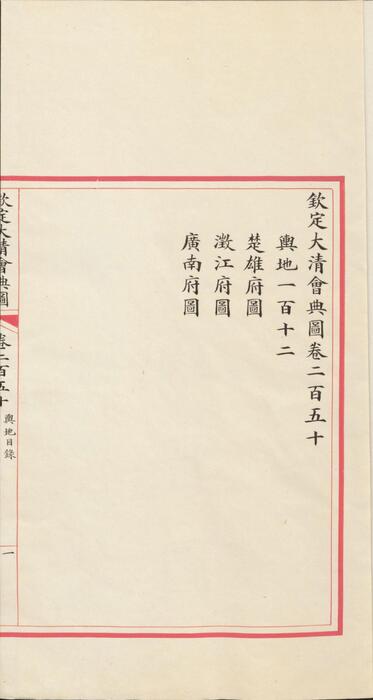 欽定大清會典圖卷二百五十
輿地一百十二
楚雄府圖
澂江府圖
廣南府圖
欽定大清會典圖
卷二百五十
輿地目錄
一